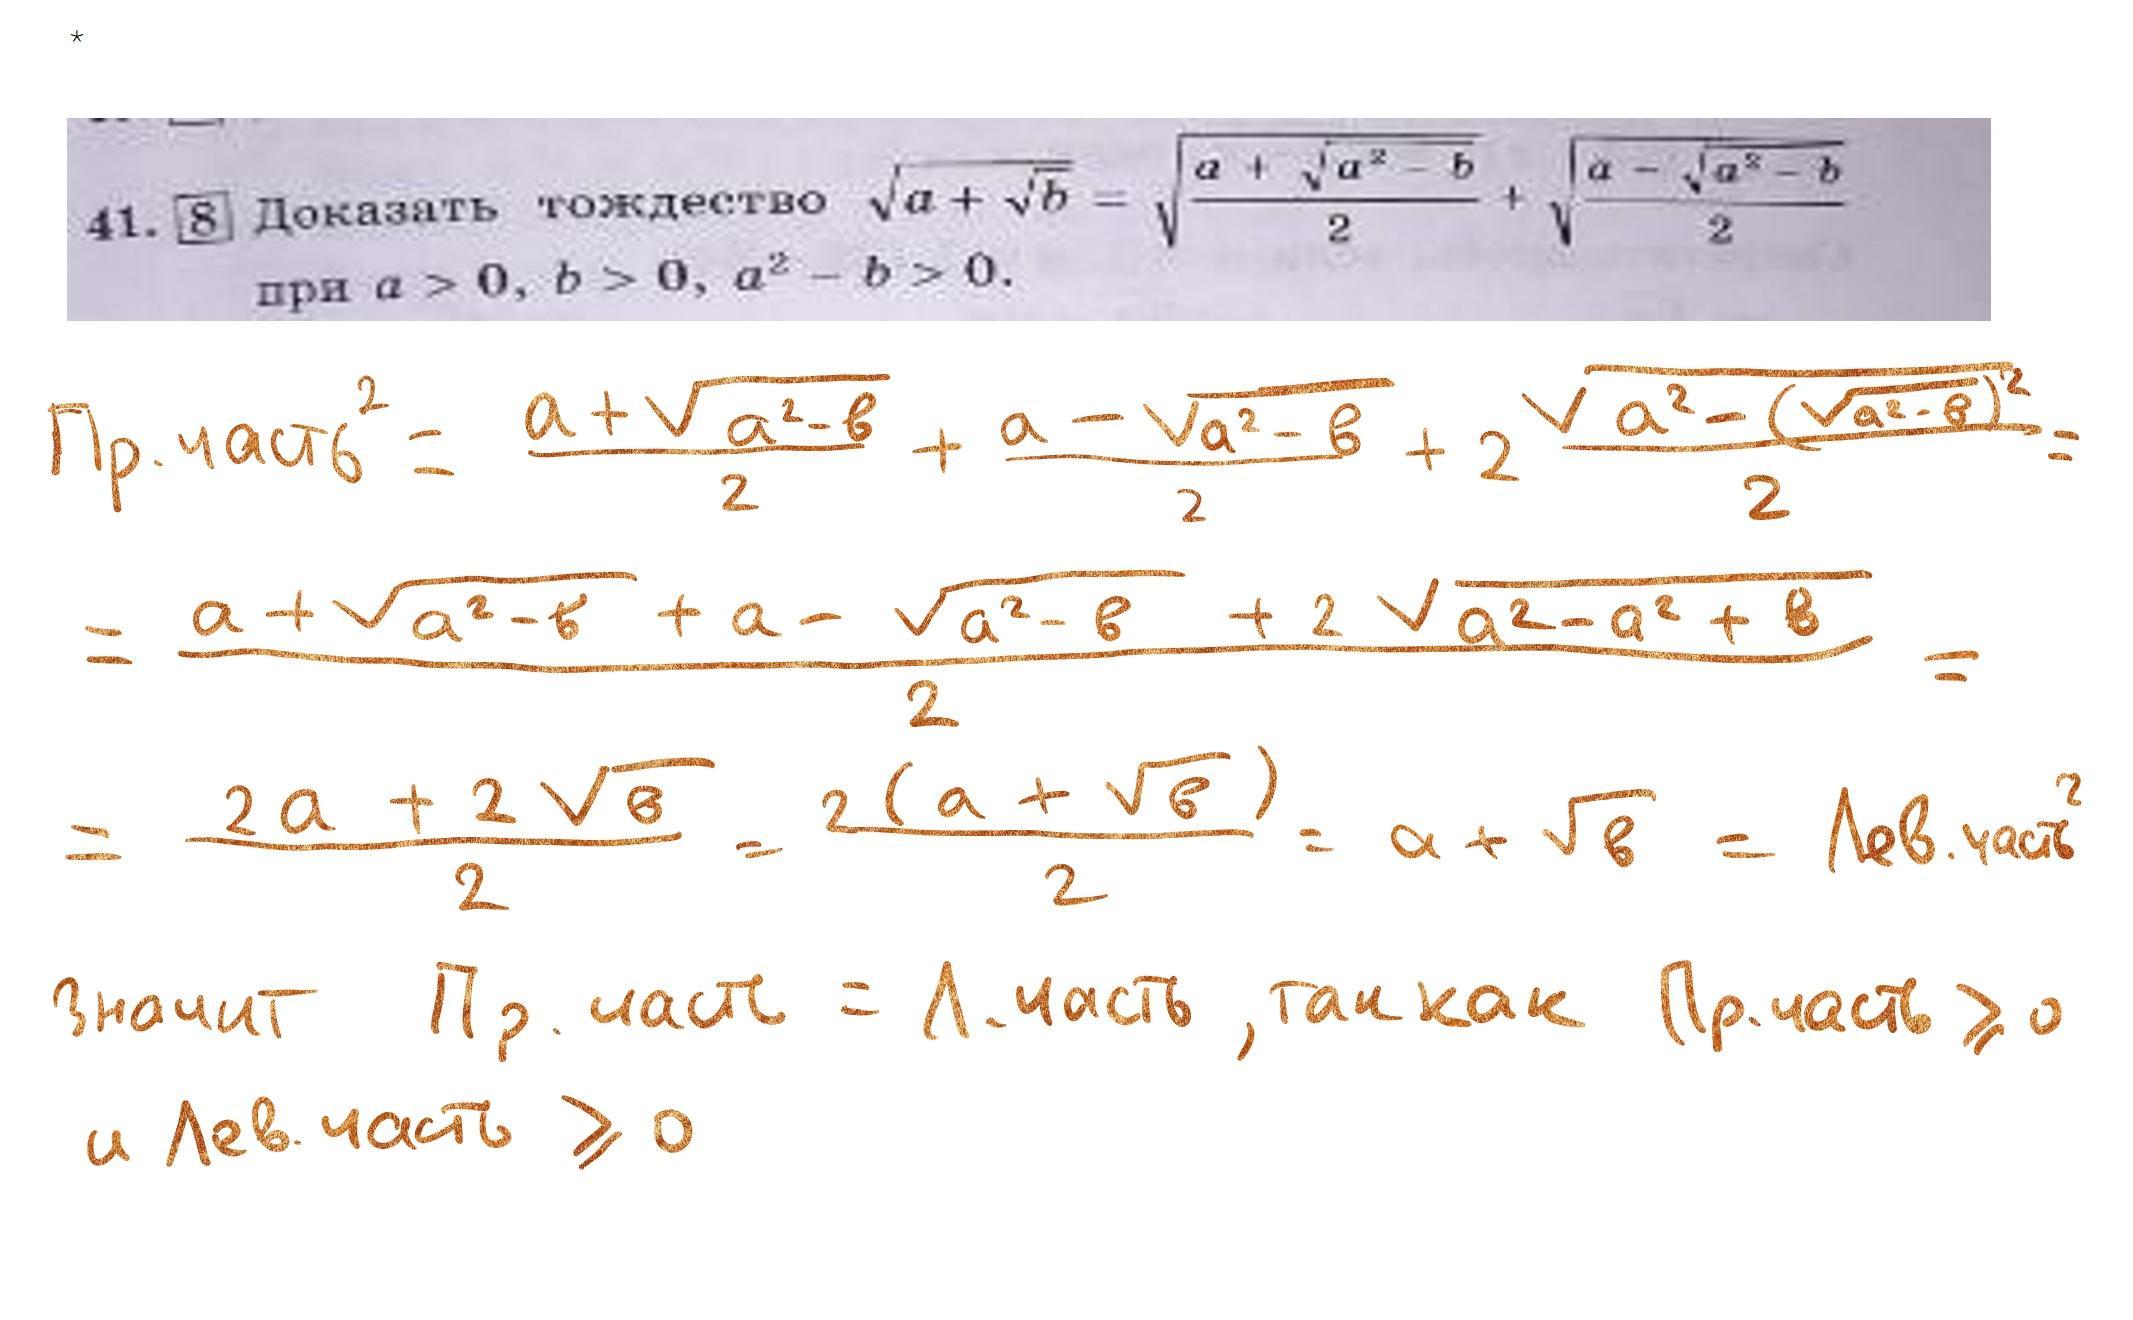 *
41. [8] Доказать тождество √(a + √b) = √((a + √(a² − b))/2) + √((a − √(a² − b))/2)
при a > 0, b > 0, a² − b > 0.
Пр.часть² = (a+√(a²-в))/2 + (a-√(a²-в))/2 + 2 √(a²-(√(a²-в))²)/2 =
= (a+√(a²-в) + a - √(a²-в) + 2√(a²-a²+в))/2 =
= (2a + 2√в)/2 = 2(a + √в)/2 = a + √в = Лев.часть²
Значит Пр. часть = Л.часть, так как Пр.часть ⩾ 0
и Лев.часть ⩾ 0